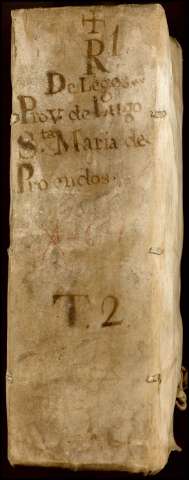 +
R!
De Legos
Prov. de Lugo
Sta. Maria de
Proendos.
T. 2